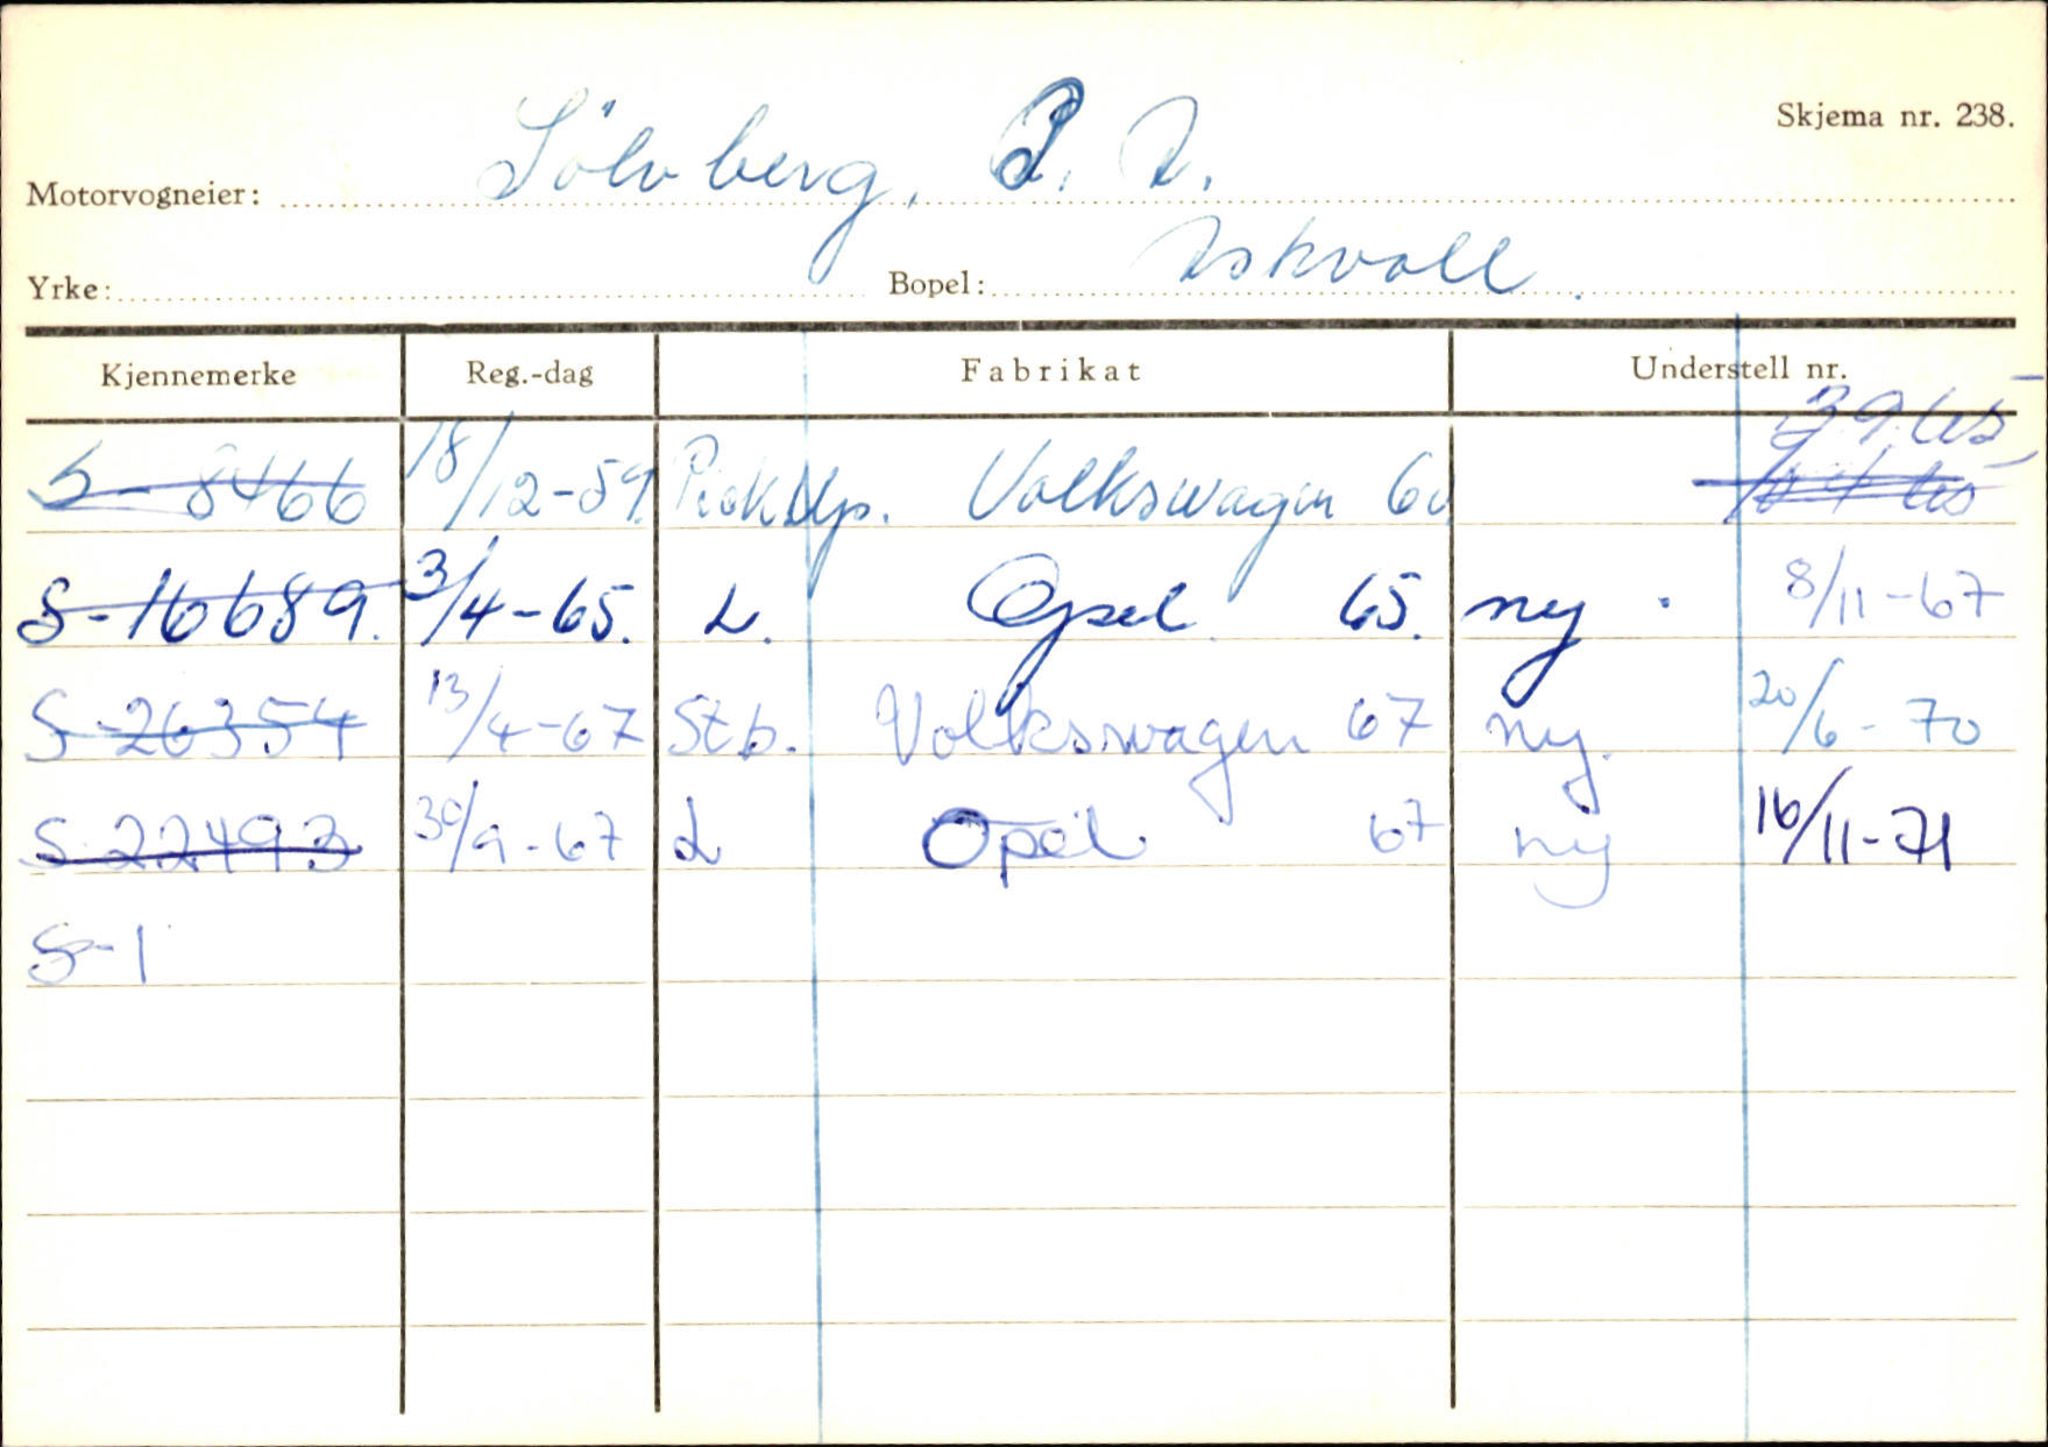 Skjema nr. 238.
Motorvogneier: Sölvberg, P. I.
Yrke: Bopel: Askvoll.
Kjennemerke Reg.-dag Fabrikat Understell nr.
S-8466 18/12-59. Pick Up. Volkswagen 60
S-16689. 3/4-65. L. Opel 65. ny. 8/11-67
S-26354 13/4-67 Stb. Volkswagen 67 ny. 20/6-70
S-22493 30/9-67 L Opel 67 ny 16/11-71
S-1